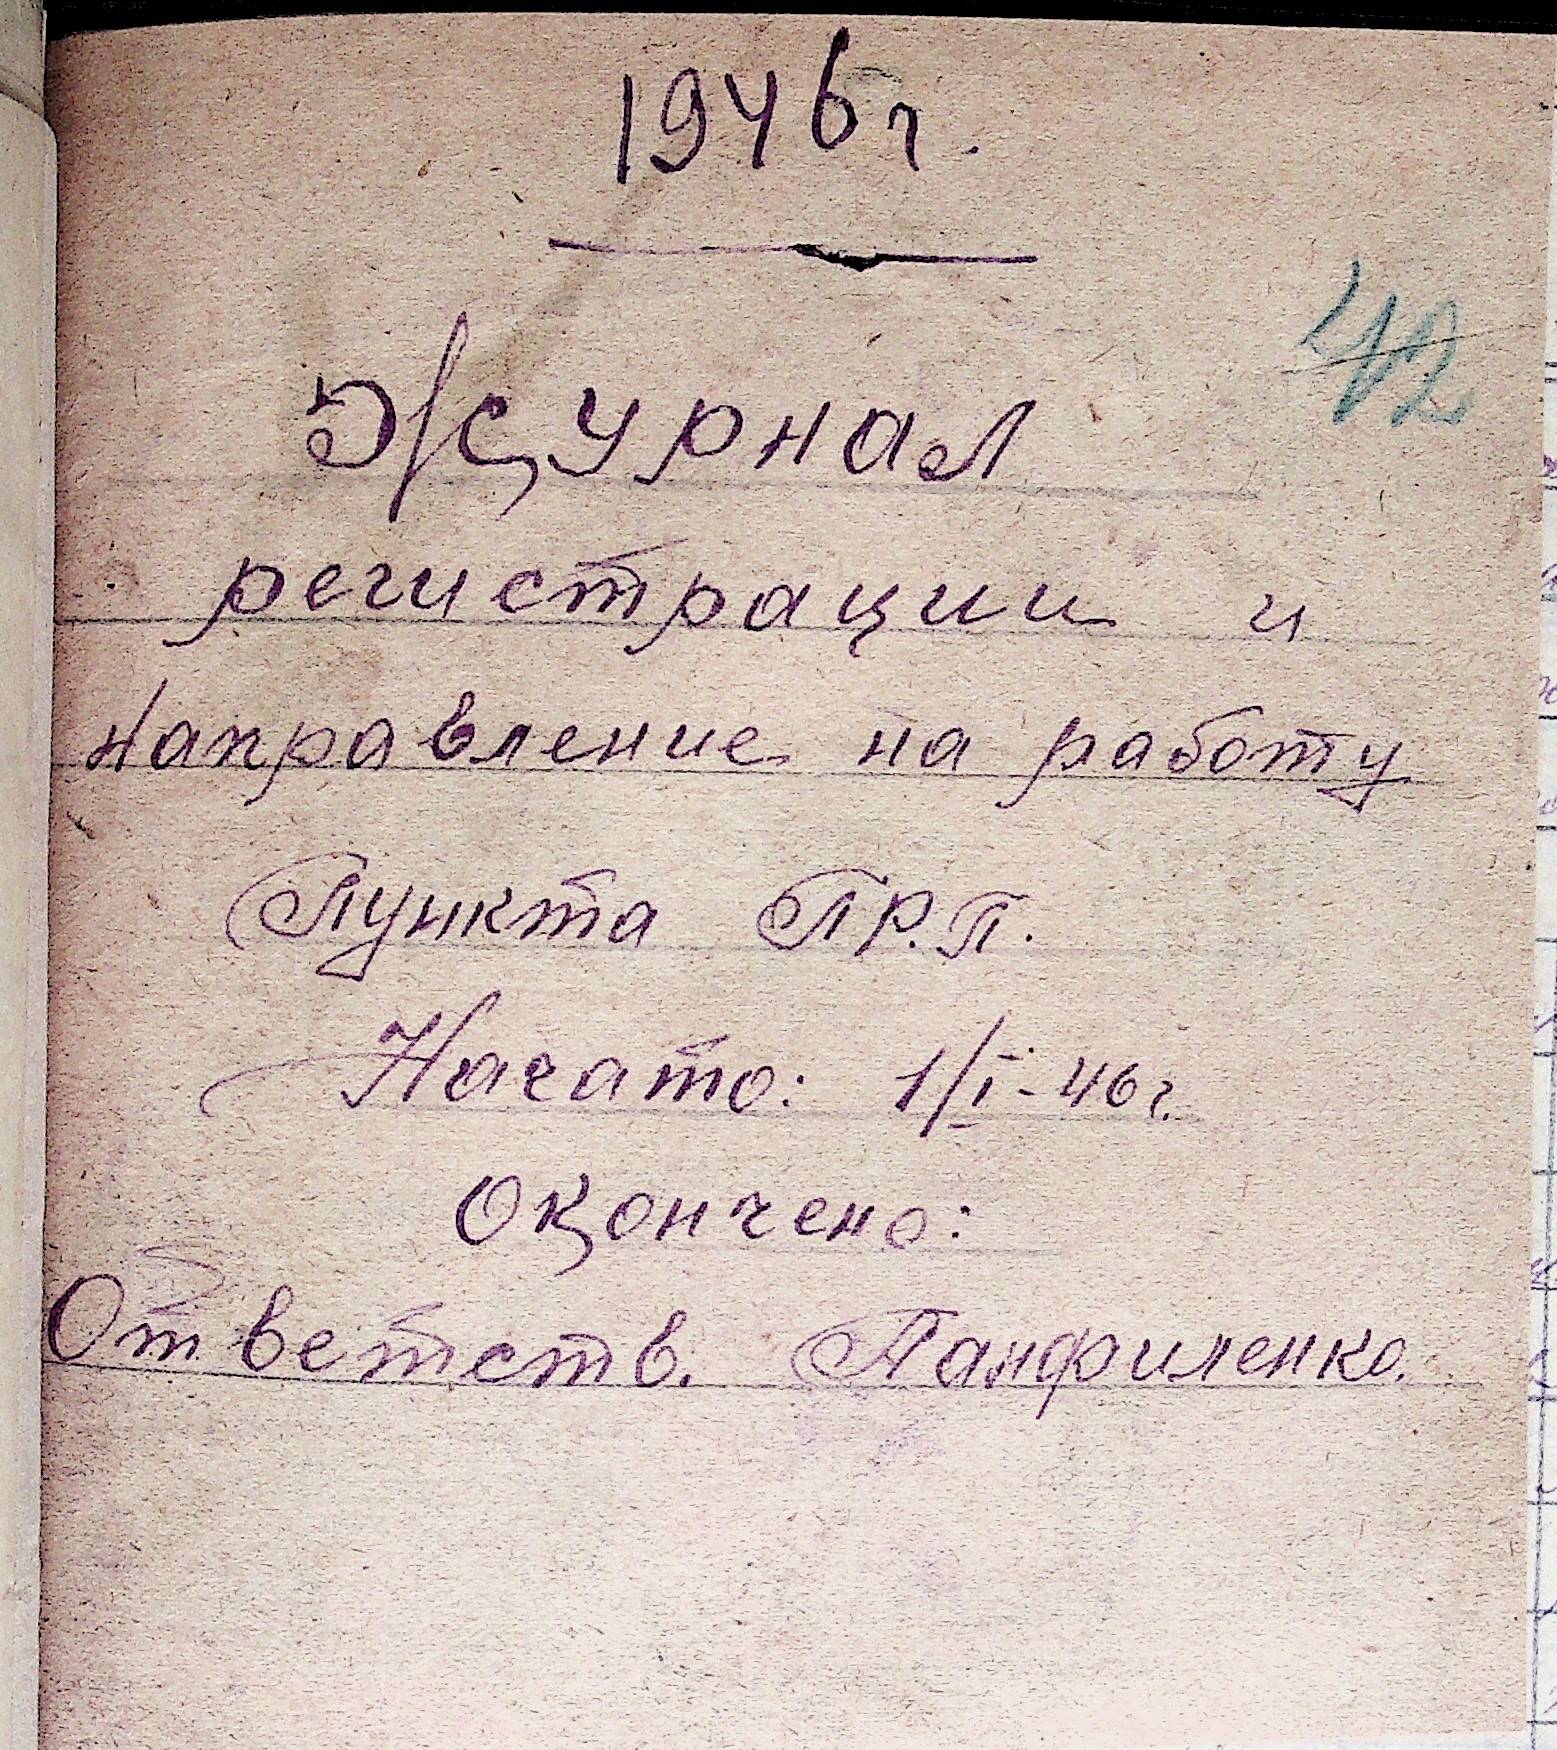 1946 г.
42
Журнал
регистрации и
направление на работу
Пункта П.Р.П.
Начато: 1/I-46 г.
Окончено:
Ответств. Панфиленко.